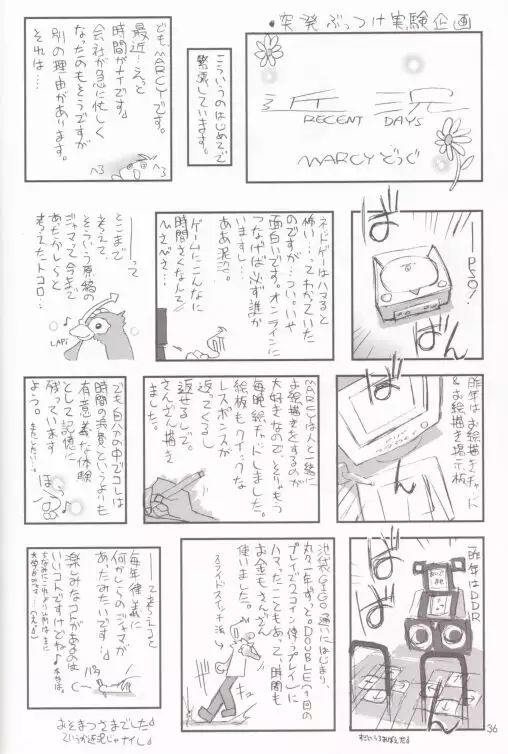 ・突発ぶっつけ実験企画
近況
RECENT DAYS
MARCYどうぐ
こういうのはじめてで
緊張しています。
どもMARCYです。
最近…えっと
時間がナイです。
会社が急に忙しく
なったのもそうですが
別の理由があります。
それは…
ば
ば
──PSO!
ネトゲーはハマると
怖い…ってわかっていた
のですが…つい。いや
面白いです。オンラインに
つなげば必ず誰か
いますし…
ああ泥沼。
ゲームにこんなに
時間さくなんて
ひさびさ…
──って
とこまで
考えて、
そういう原稿の
ジャマって今まで
あったかしらと
考えてたトコロ…
LAPi
ば
ば
昨年はお絵描きチャットに
&お絵描き掲示板
MARCYは人と一緒に
お絵描きをするのが
大好きなので、とりもう
毎晩絵チャットしました。
絵板もクイックな
レスポンスが
返ってくるし
返せるしで。
さんざん描き
ました。
でも自ハクの中でコレは
時間の浪費というよりも
有意義な体験
として記憶に
残っています
よう。
またしたい…。
ほう
ば
ば
昨年はDDR
池袋GIGO通いにはじまり、
丸々1年ずっと。DOUBLE(1回の
プレイで2コイン使うプレイ)に
ハマったこともあって時間も
お金もさんざん
使いました。
スライドスイッチ法→
キュ
──って考えると
毎年律義に
何かしらのジャマが
あったみたいです…♪
楽しみなコトがあるのは
いいコトですけどね♪
パタ
おそまつさまでした♪
というか近況じゃナイし♪
36